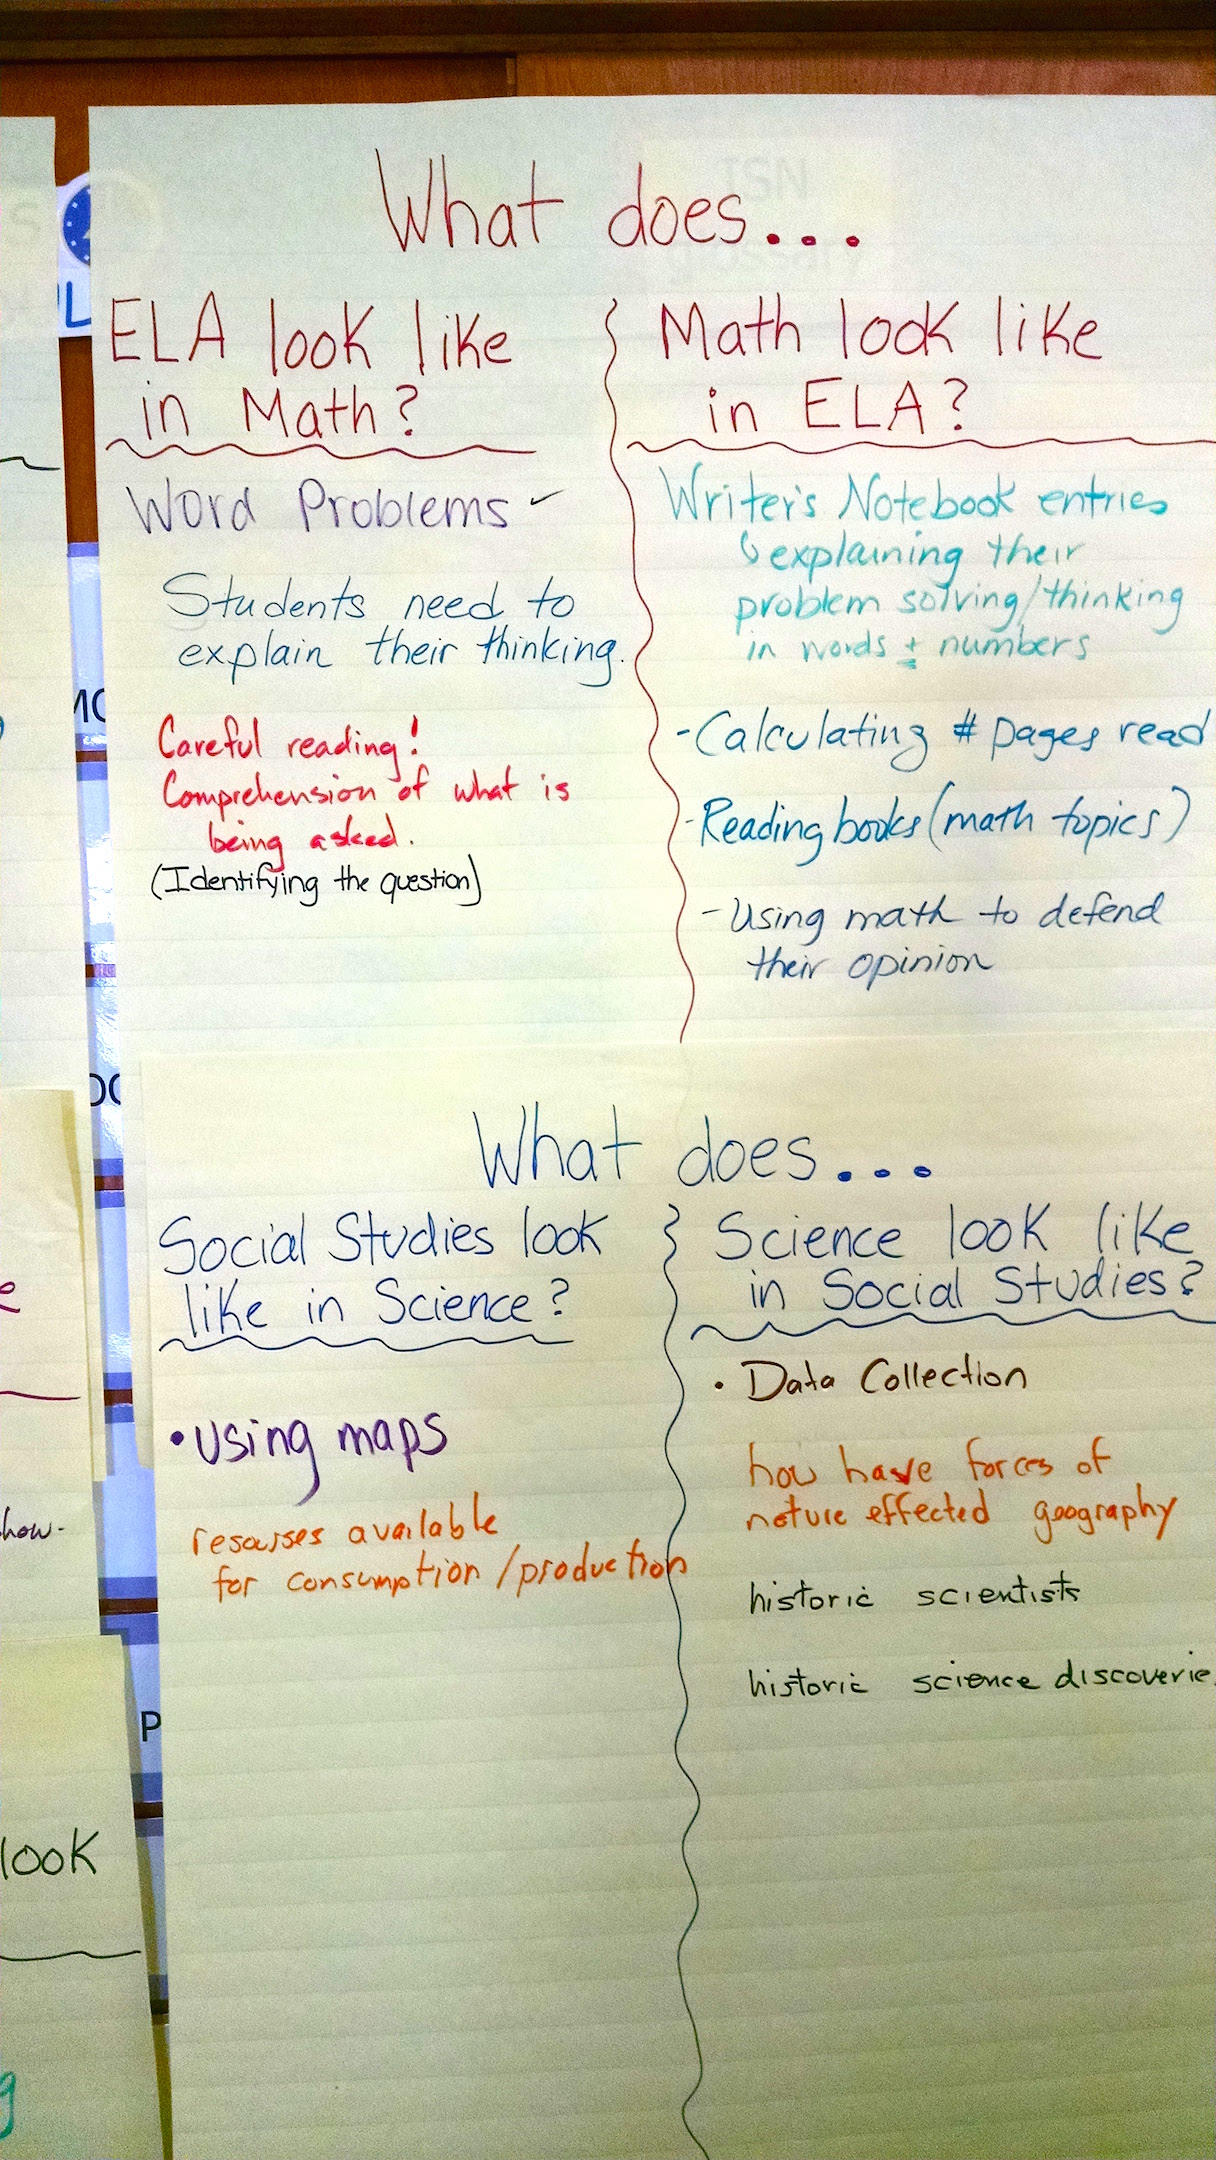 What does...
ELA look like
in Math?
Word Problems
Students need to
explain their thinking.
Careful reading!
Comprehension of what is
being asked.
(Identifying the question)
Math look like
in ELA?
Writer's Notebook entries
explaining their
problem solving/thinking
in words + numbers
-Calculating # pages read
-Reading books (math topics)
-Using math to defend
their opinion
What does...
Social Studies look
like in Science?
•using maps
resourses available
for consumption/production
Science look like
in Social Studies?
• Data Collection
how have forces of
nature effected geography
historic scientists
historic science discoverie
look
how-
P